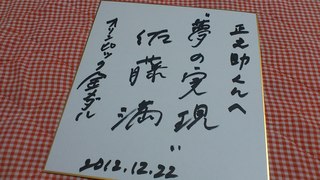 正之助くんへ
"夢の実現"
佐藤満
オリンピック金メダル
2012.12.22